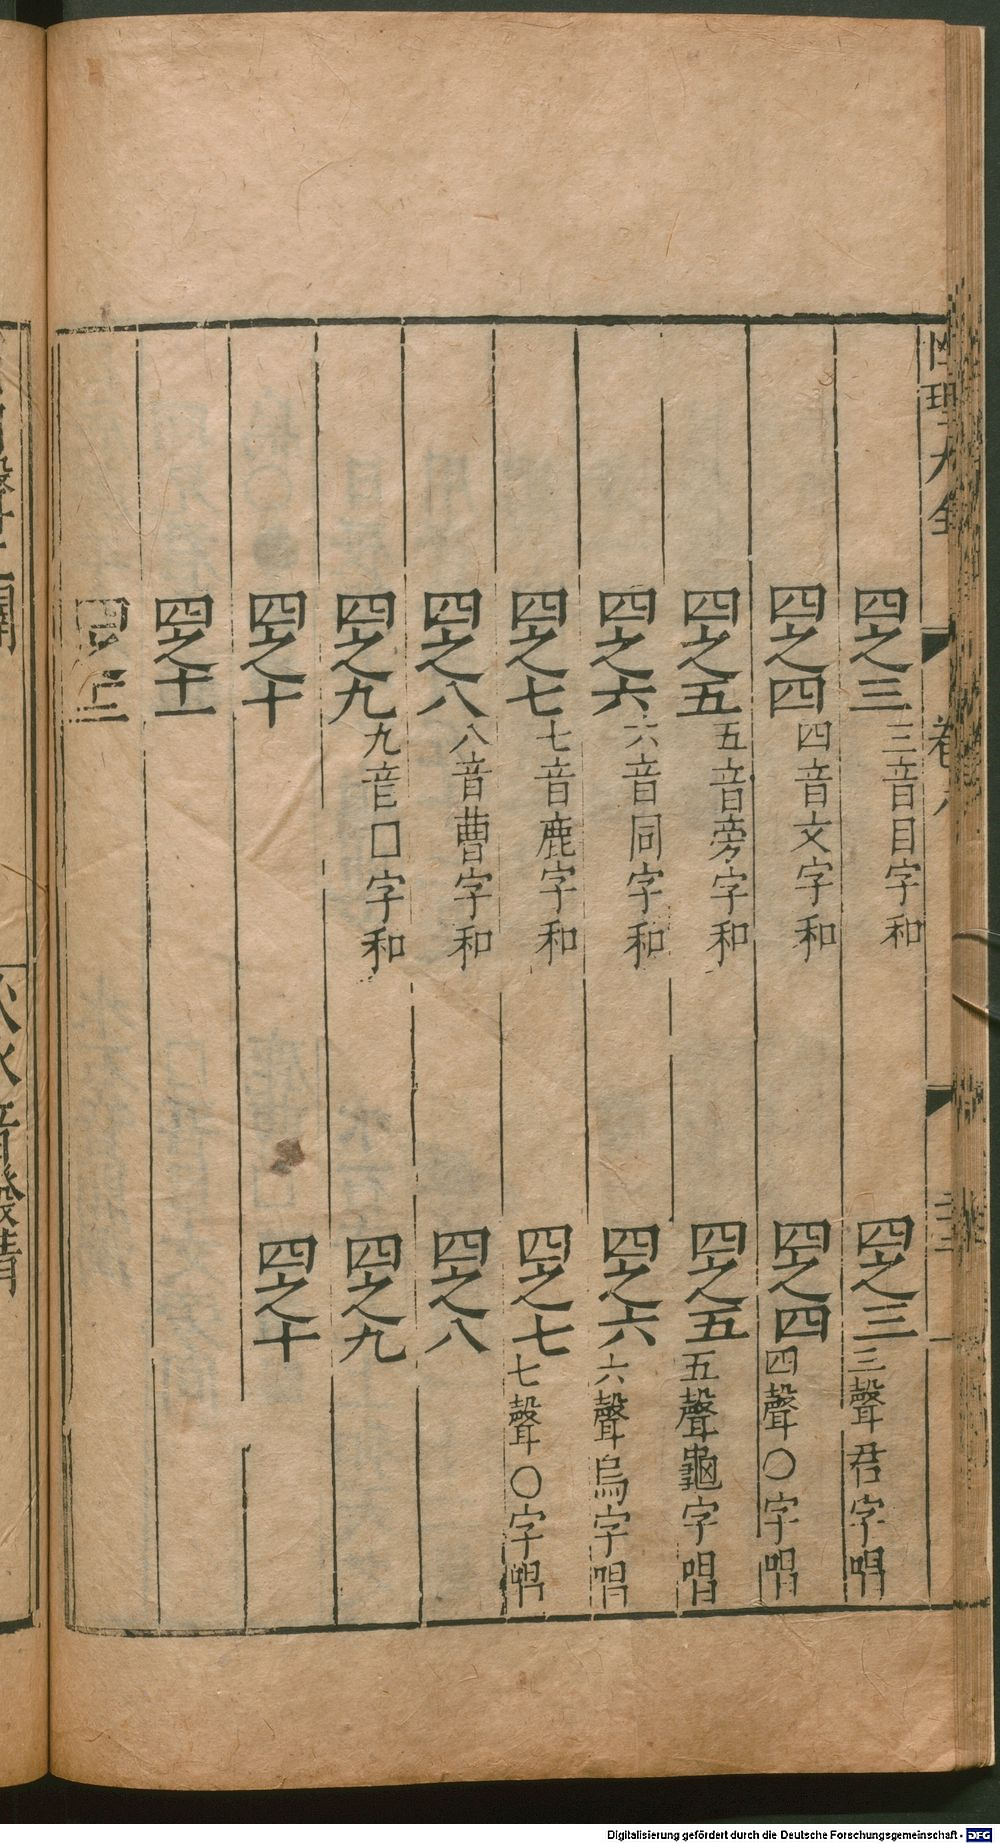 性理大全
卷八
四之三三音目字和 四之三三聲君字唱
四之四四音文字和 四之四四聲〇字唱
四之五五音旁字和 四之五五聲龜字唱
四之六六音同字和 四之六六聲烏字唱
四之七七音鹿字和 四之七七聲〇字唱
四之八八音曹字和 四之八
四之九九音□字和 四之九
四之十 四之十
四之十一
四之
Digitalisierung gefördert durch die Deutsche Forschungsgemeinschaft - DFG